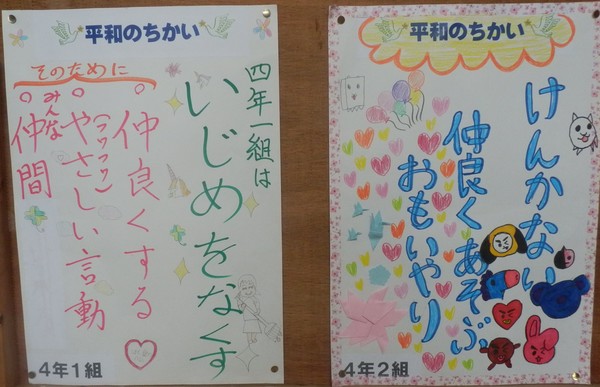 平和のちかい
四年一組は
いじめをなくす
そのために
○仲良くする
○やさしい言動
(フワフワ)
○みんな仲間
4年1組
平和のちかい
けんかない
仲良くあそぶ
おもいやり
4年2組